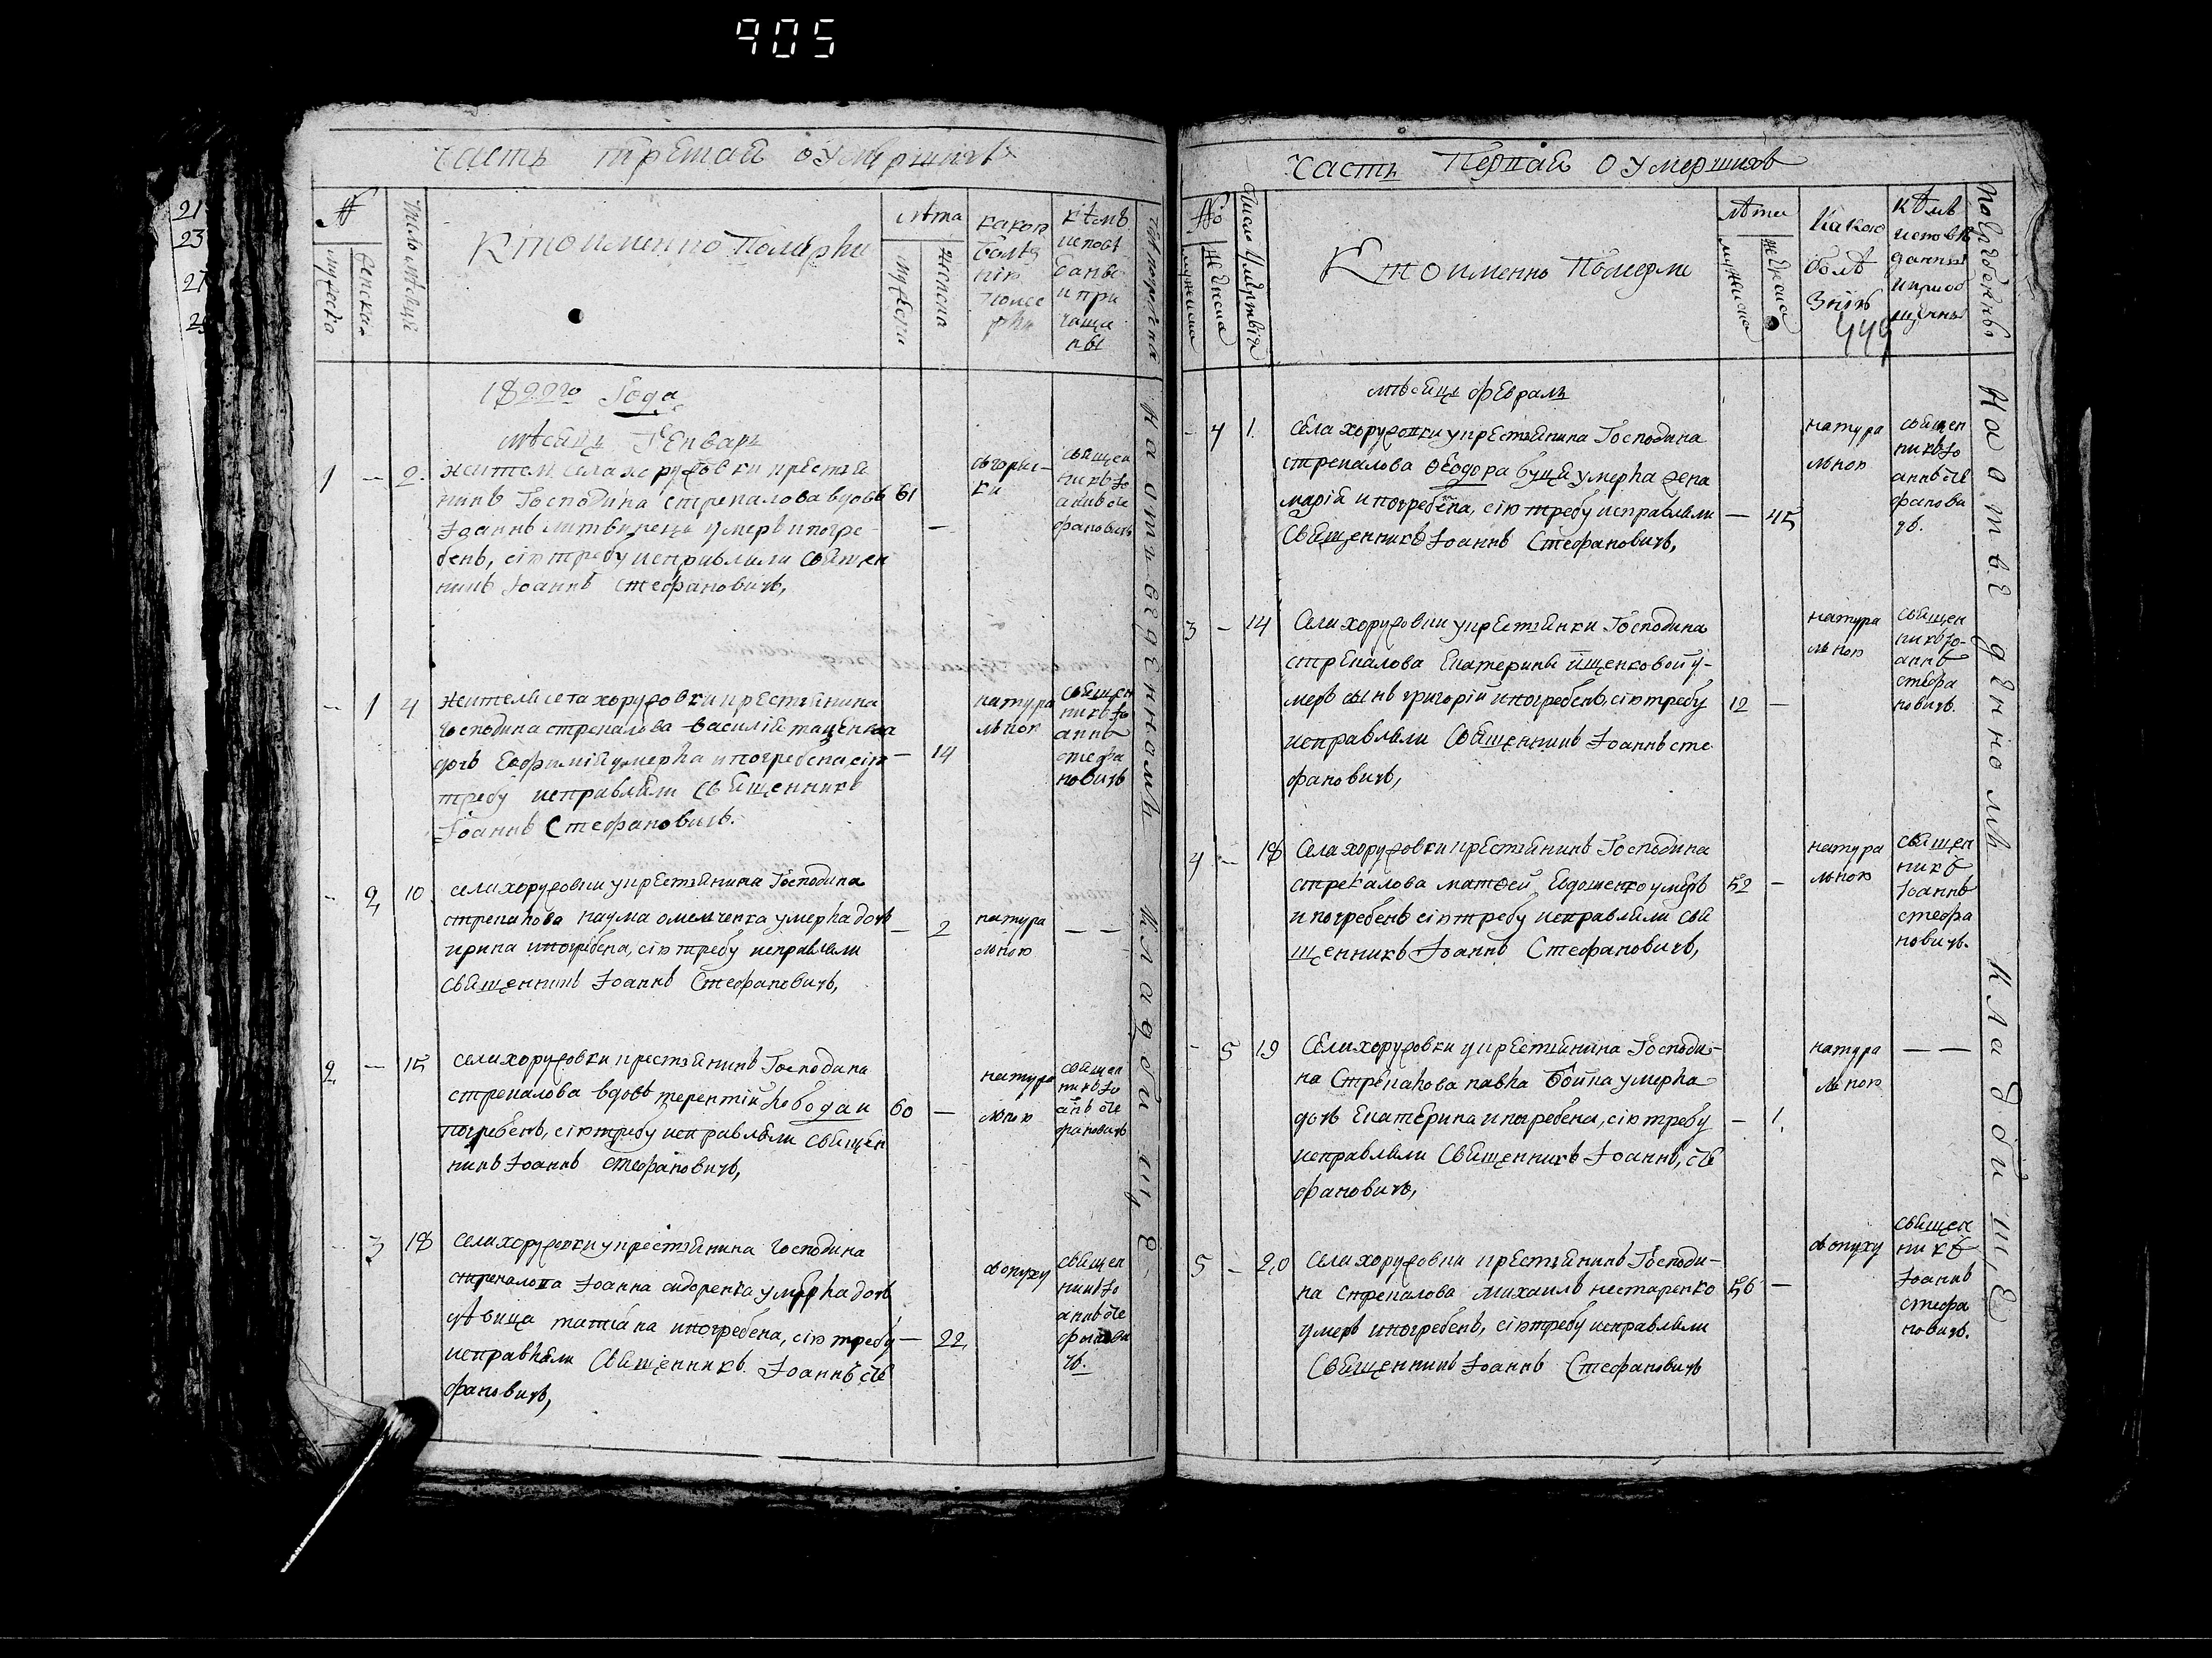 905
21
23
27
Часть третая о умершихъ
№
мужеска
женска
число мѣсяца
Кто именно Померли
лѣта
мужеска
женска
какою
болѣз
нію
помер
ли
кѣмъ
исповѣ
данъ
и при
чаще
ны
1822го Года
мѣсяцъ Генварь
1 — 2
жители села хоружовки крестья
нинъ Господина стрекалова вдовъ 61
Іоаннъ литвинецъ умеръ и погре-
—
бенъ, сію требу исправляли Священ
никъ Іоаннъ Стефановичъ,
священ
никъ Іо
аннъ сте
фановичъ
- 1 4
жителя села хоружовки крестянина
господина стрекалова василія таценка
дочь Евфимія умерла и погребена, сію — 14
требу исправляли Священникъ
Іоаннъ Стефановичъ.
натура
льною
священ
никъ Іо
аннъ
стефа
новичъ
- 2 10
села хоружовки у крестянина Господина
стрекалова наума омельченка умерла дочь
ирина и погребена, сію требу исправляли
— 2
Священникъ Іоаннъ Стефановичъ,
натура
льною
— —
2 — 15
села хоружовки крестянинъ Господина
стрекалова вдовъ терентій лободa и
60 —
погребенъ, сію требу исправляли Священ
никъ Іоаннъ стефановичъ,
натура
льною
священ
никъ Іо
анъ сте
фановичъ
- 3 18
села хоружовки у крестянина господина
стрекалова Іоанна сидоренка умерла дочь
дѣвица татіана и погребена, сію требу — 22
исправляли Священникъ Іоаннъ сте
фановичъ,
съ опуху
священ
никъ Іо
аннъ сте
фанови
чъ.
на отведенномъ кладбищѣ
Часть Первая О умершихъ
№
мужеска
женска
Число умертвія
Кто именно Померли
лѣта
мужеска
женска
Какою
болѣ
знію
449
кѣмъ
исповѣ
данны
и приоб
щенны
погребены
мѣсяцъ февраль
- 4 1.
Села хоружовки у крестянина Господина
стрекалова Ѳеодора буця умерла жена
марія и погребена, сію требу исправляли — 45
Священникъ Іоаннъ Стефановичъ,
натура
льною
священ
никъ Іо
аннъ сте
фанови
чъ.
3 - 14
Села хоружовки у крестянки Господина
стрекалова Екатерины ященковой у-
меръ сынъ григорій и погребенъ, сію требу 12 —
исправляли Священникъ Іоаннъ сте
фановичъ,
натура
льною
священ
никъ Іо-
аннъ
стефа
новичъ.
4 - 18
Села хоружовки крестянинъ Господина
стрекалова матѳей Евдошенко умеръ 52 —
и погребенъ сію требу исправляли свя
щенникъ Іоаннъ Стефановичъ,
натура
льною
священ
никъ
Іоаннъ
стефа
новичъ.
- 5 19
Села хоружовки у крестянина Господи-
на Стрекалова павла бойка умерла
дочь Екатерина и погребена, сію требу — 1.
исправляли Священникъ Іоаннъ, сте
фановичъ,
натура
льною
— —
5 - 20
Села хоружовки крестянинъ Господи-
на стрекалова михаилъ нестаренко 56 —
умеръ и погребенъ, сію требу исправляли
Священникъ Іоаннъ Стефановичъ
съ опуху
священ
никъ
Іоаннъ
стефа
новичъ.
На отведенномъ кладбище